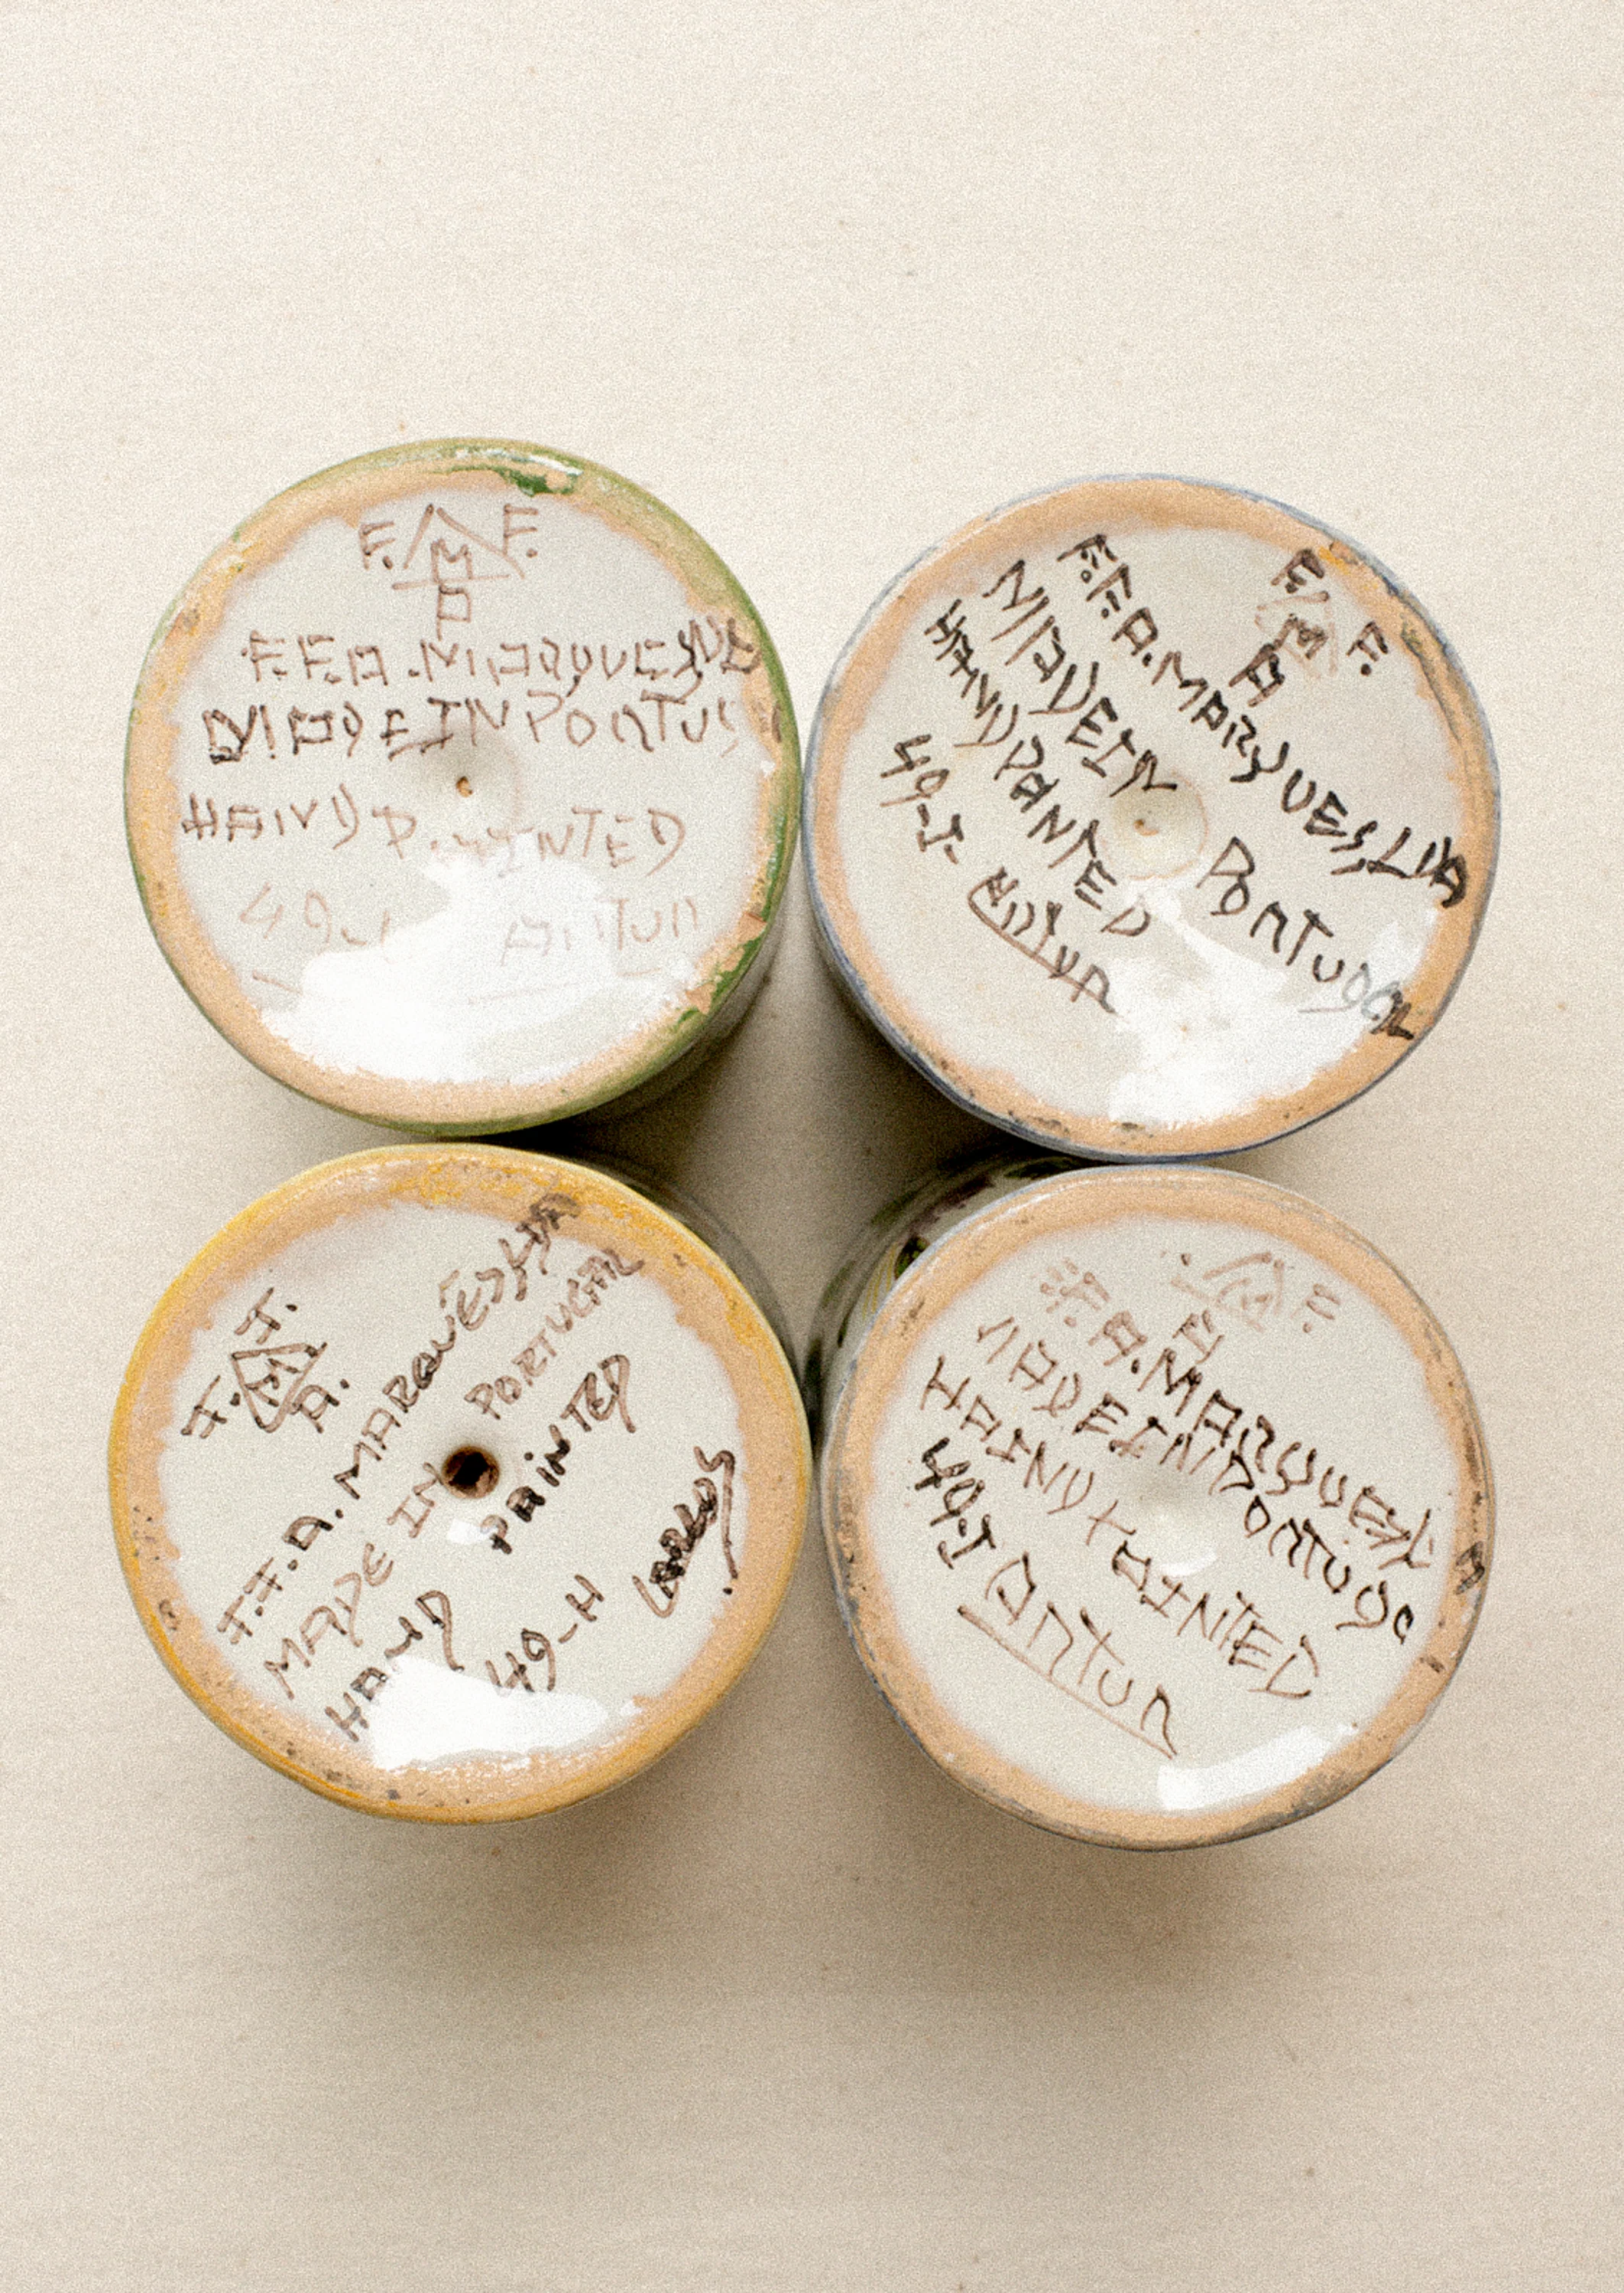 F. M F.
A
F.F.A. MARQUES, LDA
MADE IN PORTUG
HAND PAINTED
49-J
Antun
F. M F.
A
F.F.A. MARQUES, LDA
MADE IN PORTUGAL
HAND PANTED
49-J. Antun
F. M F.
A.
F.F.A. MARQUES LDA
MADE IN PORTUGAL
HAND PAINTED
49-H
F.
A
F.A. MARQUES
MADE IN PORTUGA
HAND PAINTED
49-J Antun